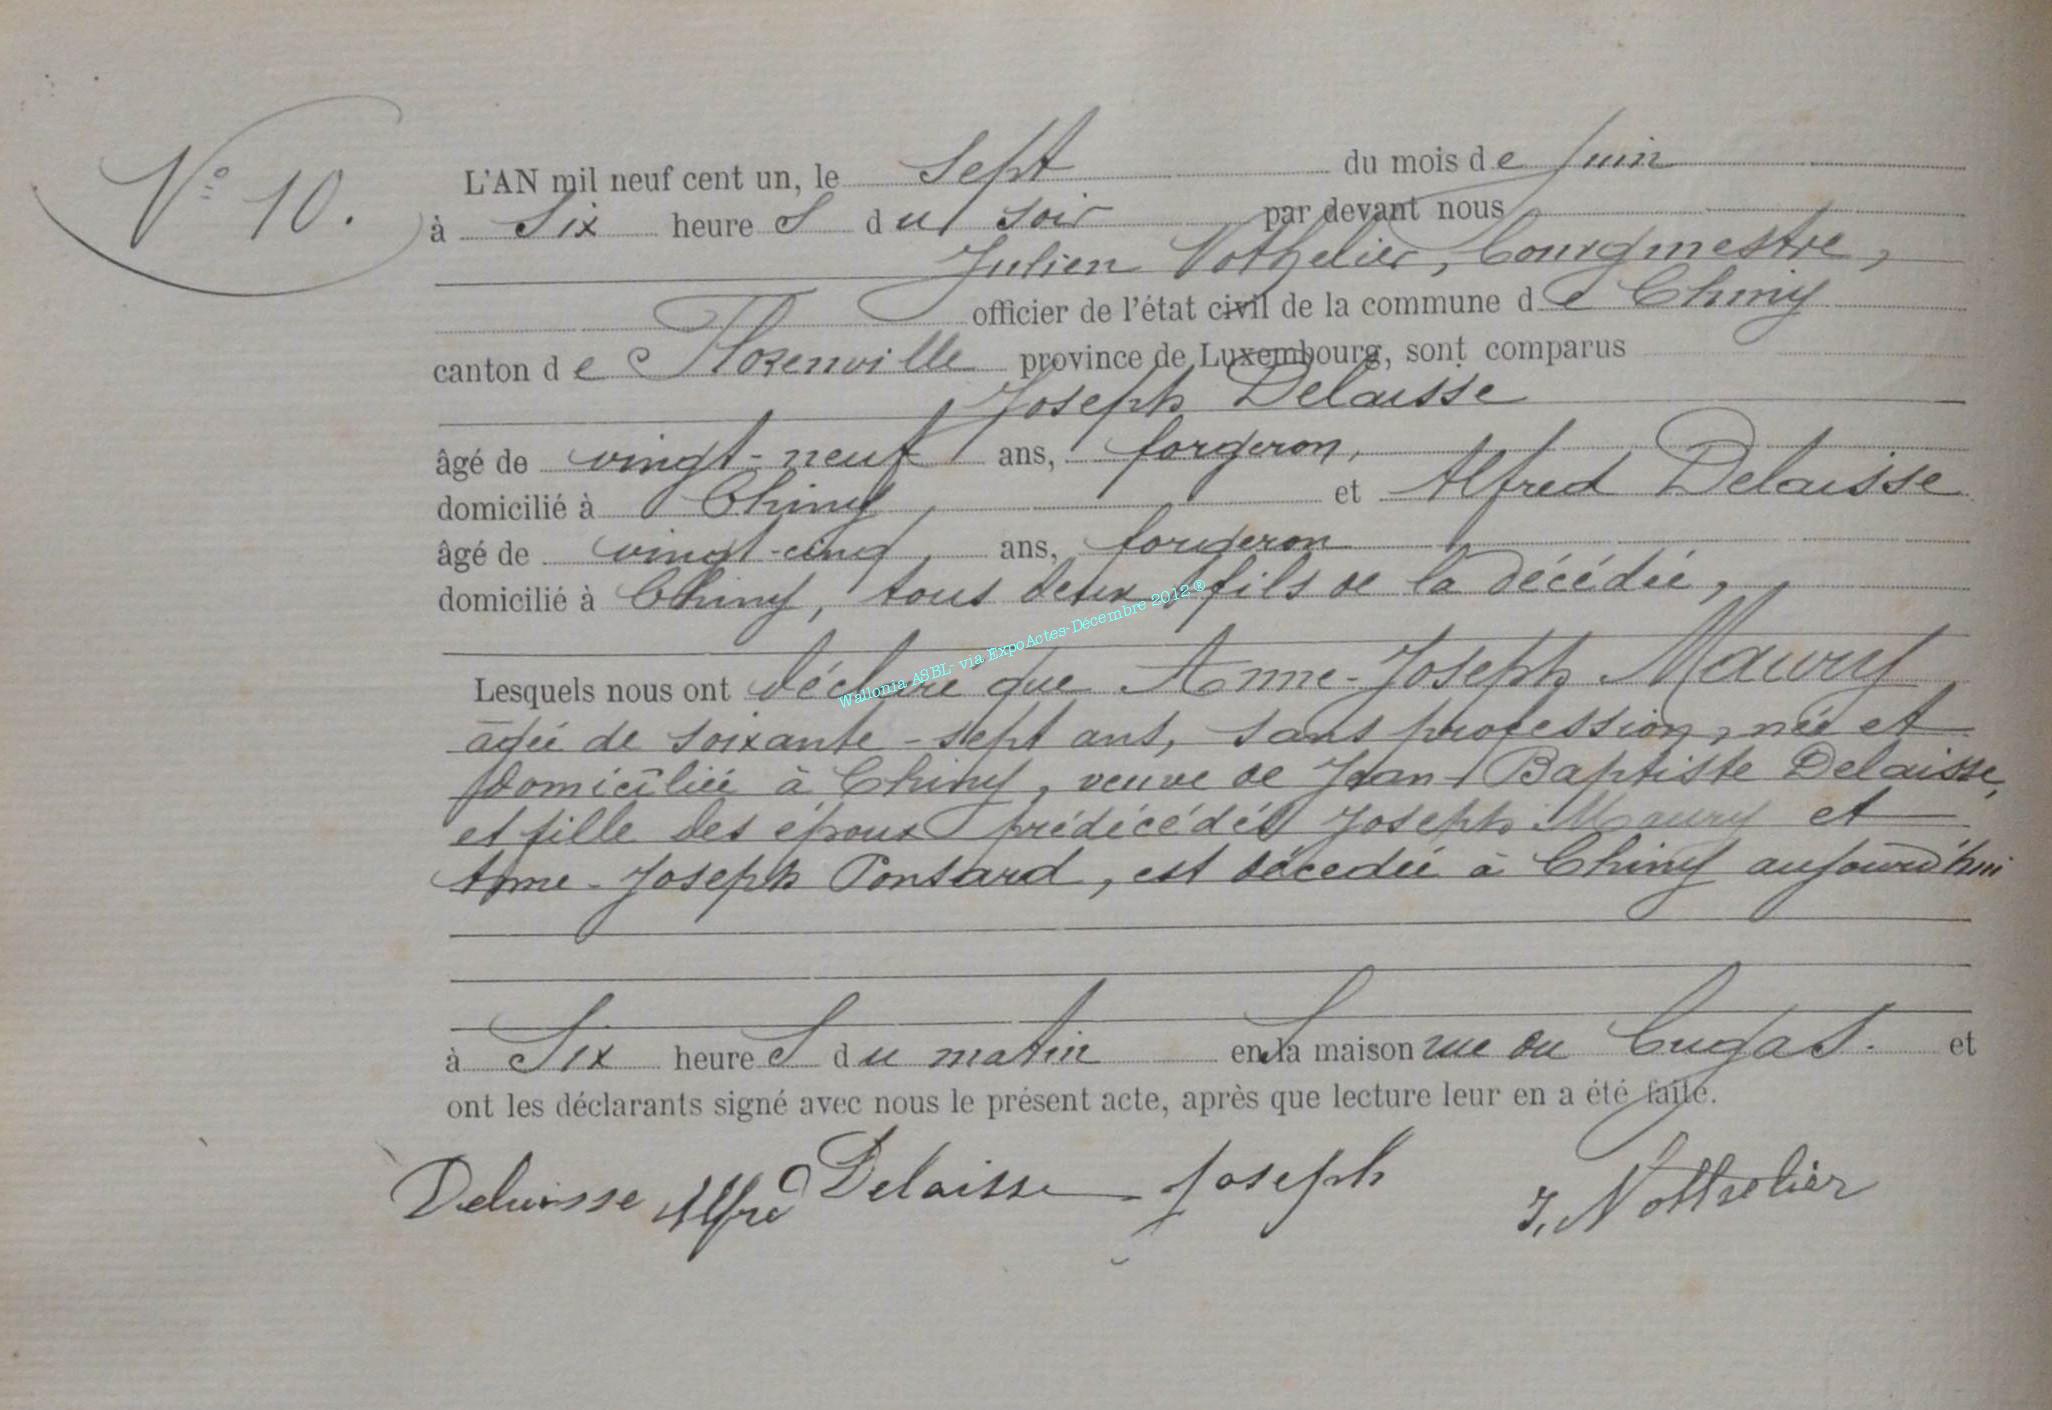 N° 10.
L'AN mil neuf cent un, le sept du mois de Juin
à Six heures du soir par devant nous
Julien Nothelier, bourgmestre,
officier de l'état civil de la commune de Chiny
canton de Florenville province de Luxembourg, sont comparus
Joseph Delaisse
âgé de vingt-neuf ans, forgeron,
domicilié à Chiny, et Alfred Delaisse
âgé de vingt-cinq, ans, forgeron
domicilié à Chiny, tous deux fils de la décédée,
Lesquels nous ont déclaré que Anne-Joseph Maury
âgée de soixante-sept ans, sans profession, née et
domiciliée à Chiny, veuve de Jean-Baptiste Delaisse,
et fille des époux prédécédés Joseph Maury et
Anne-Joseph Ponsard, est décédée à Chiny aujourd'hui
à Six heures du matin en sa maison rue du et
ont les déclarants signé avec nous le présent acte, après que lecture leur en a été faite.
Delaisse Alfred Delaisse Joseph J. Nothelier
Wallonia ASBL- via ExpoActes-Décembre 2012 ®